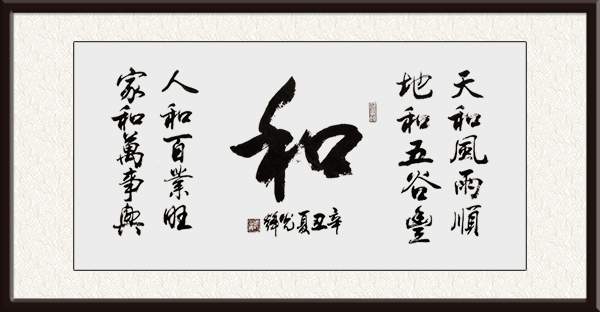 天和風雨順
地和五谷豐
和
辛丑夏光鋒
人和百業旺
家和萬事興